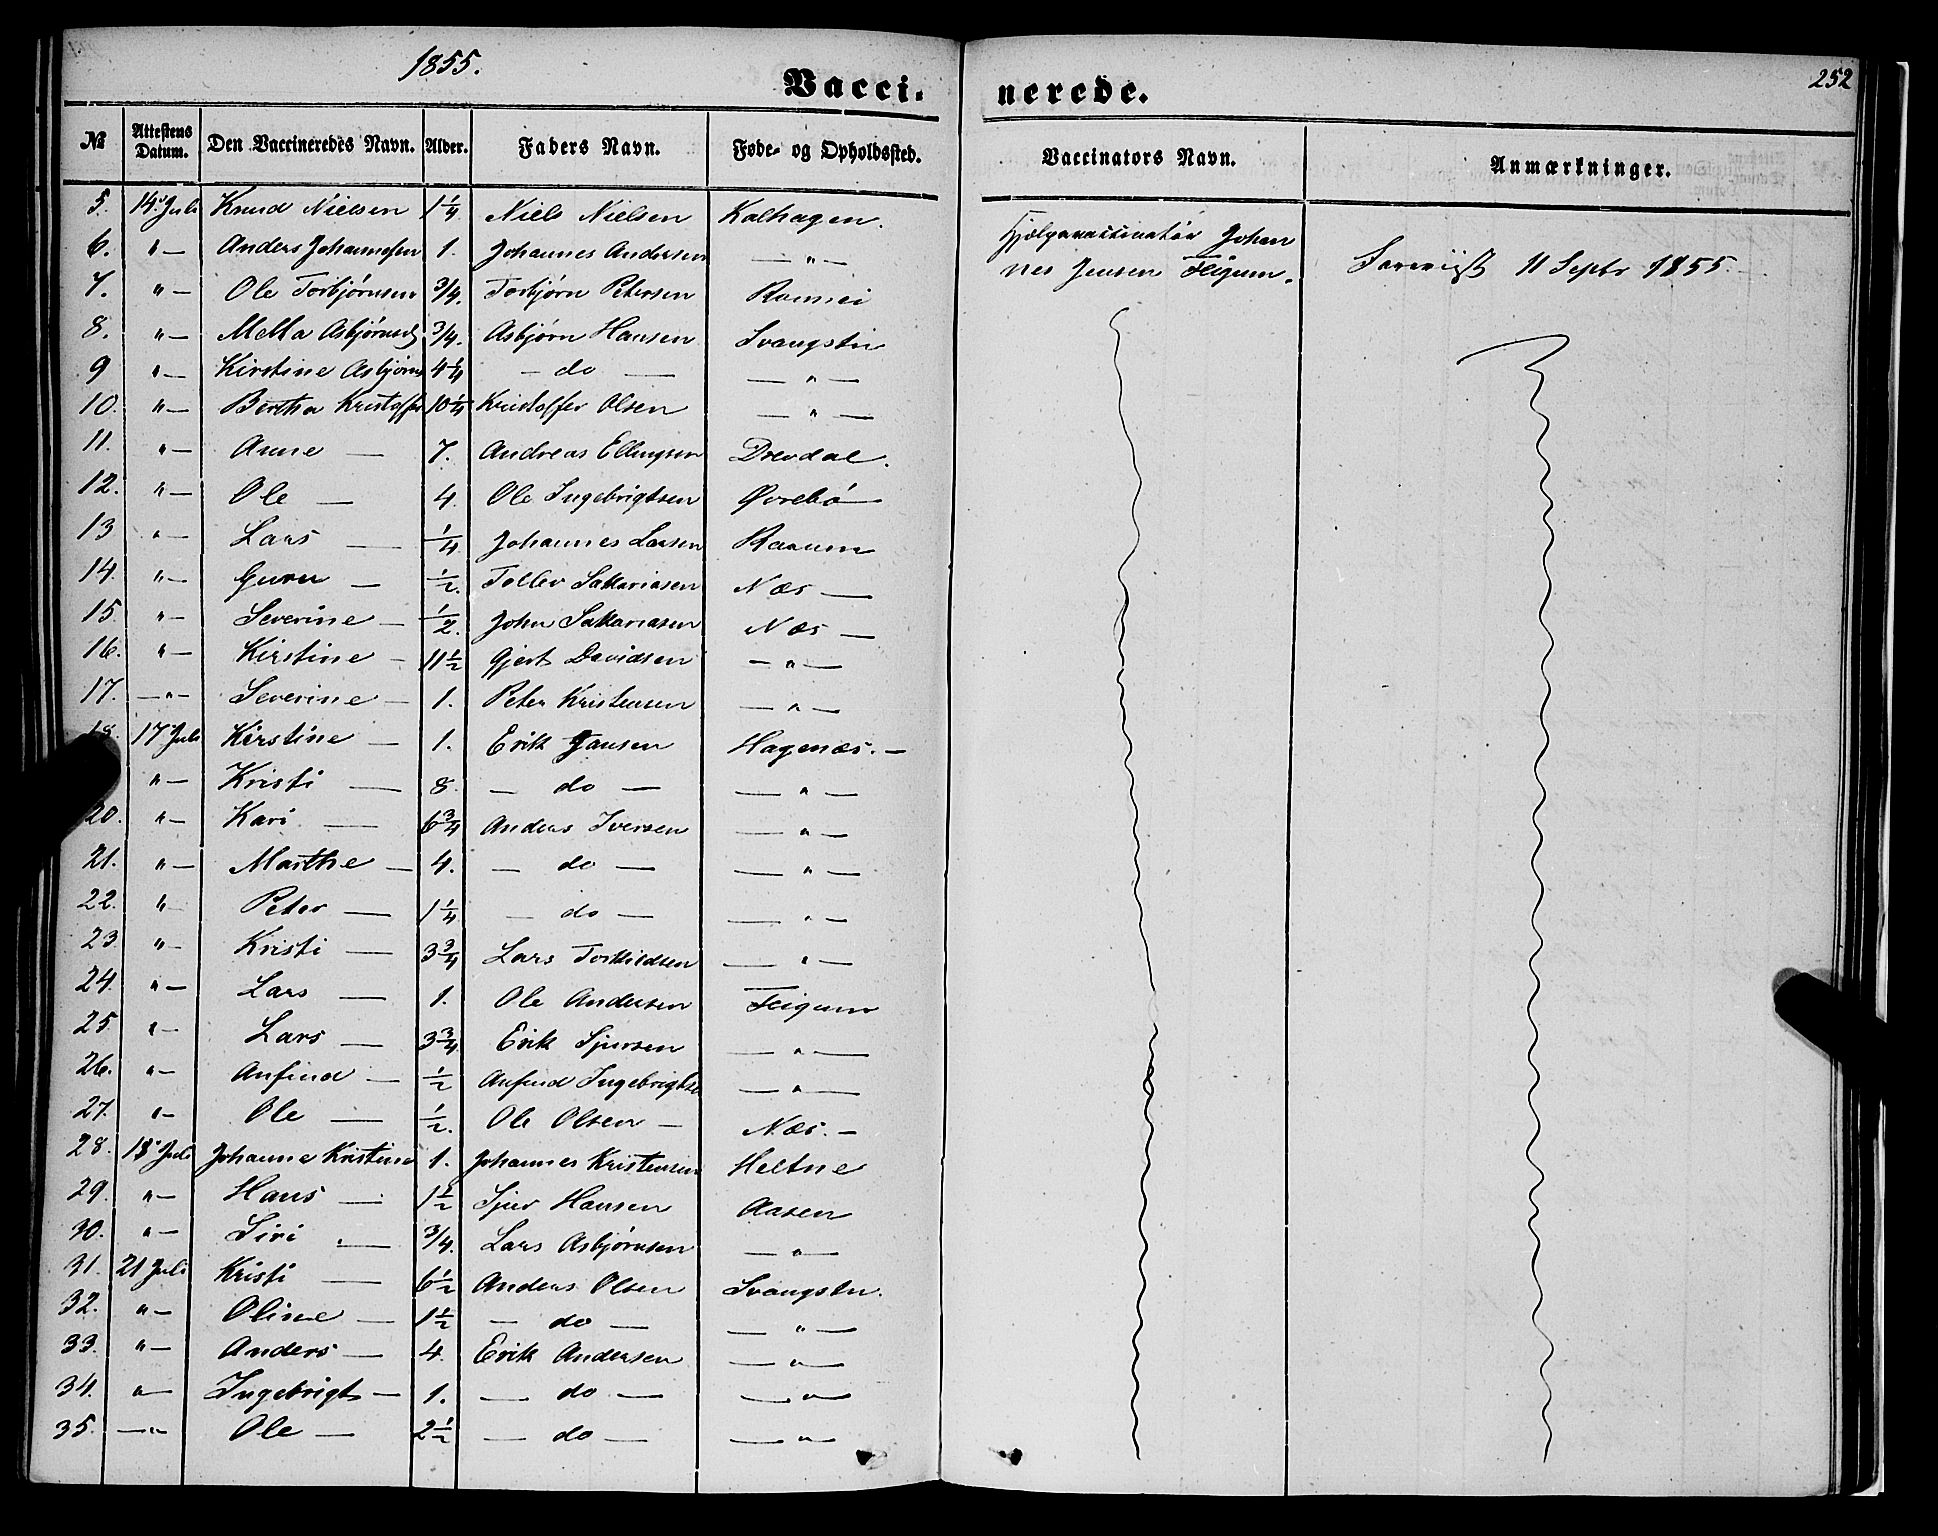 1855.
Vacci-
nerede.
252
№ Attestens Datum. Den Vaccineredes Navn. Alder. Faders Navn. Føde- og Opholdssted. Vaccinators Navn. Anmærkninger.
5. 14. Juli Knud Nielsen 1 1/4 Niels Nielsen Kalhagen.
Hjelpevaccinatør Johan
6. "— Anders Johannessen 1. Johannes Andersen —"—
nes Jensen Feigum. 11 Septbr 1855.
7. "— Ole Torbjørnsen 3/4. Torbjørn Petersen Ronnei
8. "— Metta Asbjørnsd 3/4. Asbjørn Hansen Svangstu
9 "— Kirstine Asbjørns 4 1/4 — do — —"—
10. "— Bertha Kristoffer 10 1/4 Kristoffer Olsen —"—
11. "— Anne — 7. Andreas Ellingsen Drevdal.
12. "— Ole — 4. Ole Ingebrigtsen Øvrebø
13 "— Lars — 1/4 Johannes Larsen Raaum
14. "— Guru — 1/2. Tollev Sakariasen Næs —
15. "— Severine — 1/2. John Sakariasen Næs —
16. "— Kirstine — 11 1/2 Gjert Davidsen —"—
17. —"— Severine — 1. Peter Kristensen —"—
18. 17 Juli Kirstine — 1. Erik Jansen Hagenæs. —
"— Kristi — 8. — do — —"—
20. "— Kari — 6 3/4 Anders Iversen —"—
21. "— Marthe — 4. — do — —"—
22. "— Peter — 1 1/4 — do — —"—
23. "— Kristi — 3 3/4 Lars Torkildsen —"—
24. "— Lars — 1. Ole Andersen Feigum
25 "— Lars — 3 3/4 Erik Sjursen —"—
26. "— Anfind — 1/2 Anfind Ingebrigtse —"—
27. "— Ole — 1/2. Ole Olsen — Næs. —
28. 18 Juli Johanne Kristine 1. Johannes Kristensen Heltne
29. "— Hans — 1 1/2 Sjur Hansen Aasen
30. "— Siri — 3/4. Lars Asbjørnsen —"—
31. 21 Juli Kristi — 6 1/2 Anders Olsen Svangstu.
32. "— Oline — 1 1/2 — do — —"—
33. "— Anders — 4. Erik Andersen —"—
34. "— Ingebrigt — 1. — do — —"—
35. —"— Ole — 2 1/2 — do — —"—